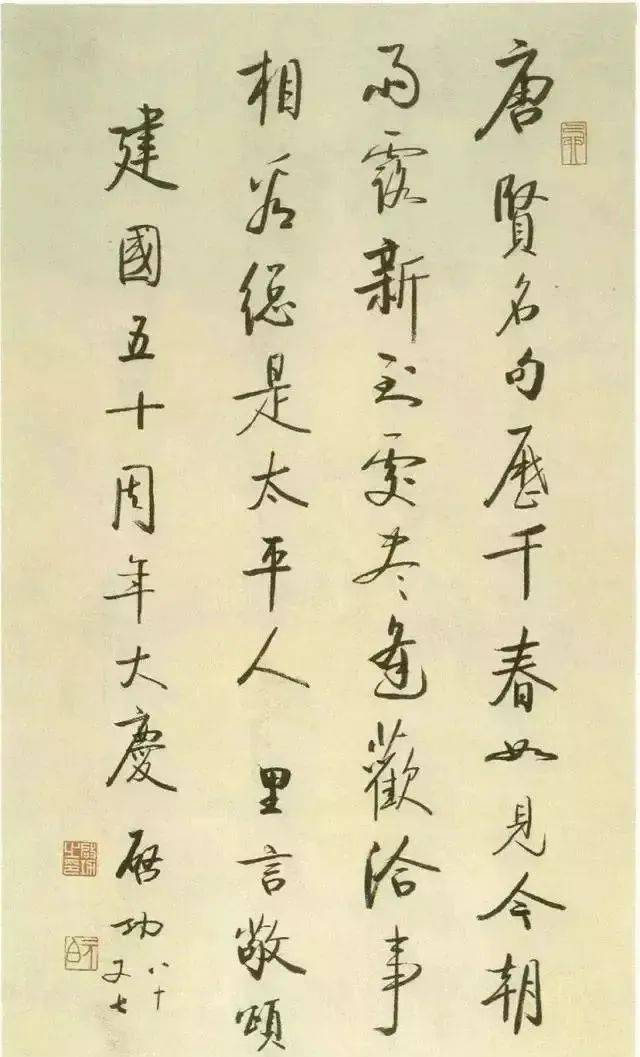 唐賢名句歷千春如見今朝
雨露新到處盡逢歡洽事
相看總是太平人 里言敬頌
建國五十周年大慶 啟功 八十又七